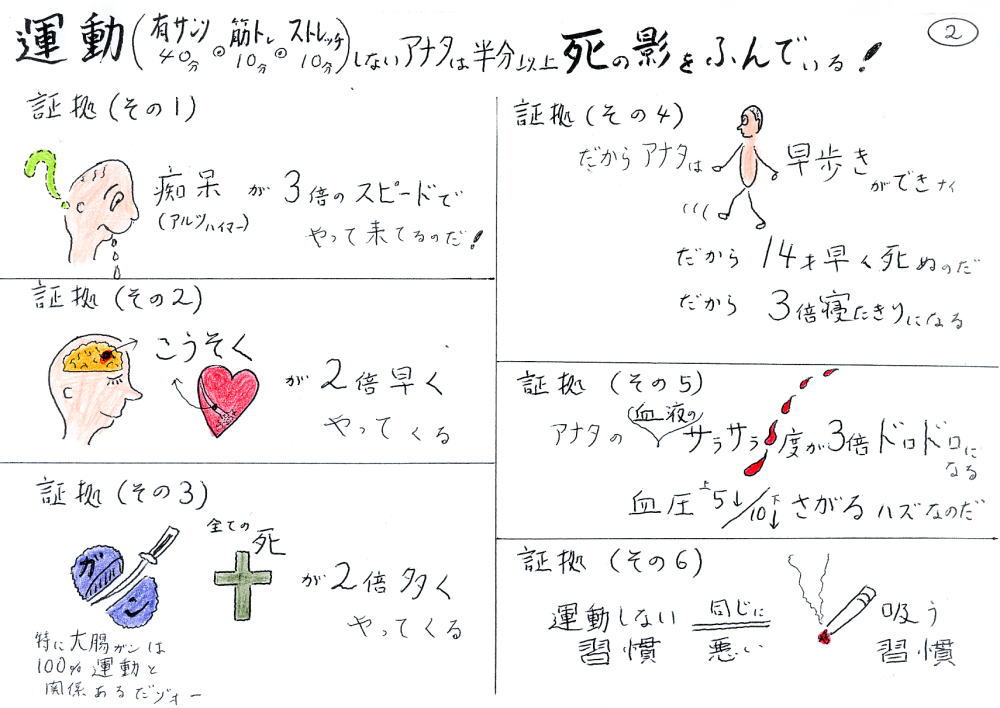 運動(有サンソ40分 筋トレ10分 ストレッチ10分)しないアナタは半分以上死の影をふんでいる!
2
証拠(その1)
?
痴呆が3倍のスピードで
(アルツハイマー)
やって来てるのだ!
証拠(その2)
こうそく
が2倍早く
やってくる
証拠(その3)
ガン
全ての死
が2倍多く
やってくる
特に大腸ガンは
100%運動と
関係あるだゾォー
証拠(その4)
だからアナタは早歩きができナイ
だから14才早く死ぬのだ
だから3倍寝たきりになる
証拠(その5)
アナタの血液のサラサラ度が3倍ドロドロに
なる
血圧上5↓/10下↓さがるハズなのだ
証拠(その6)
運動しない習慣
同じに悪い
吸う習慣